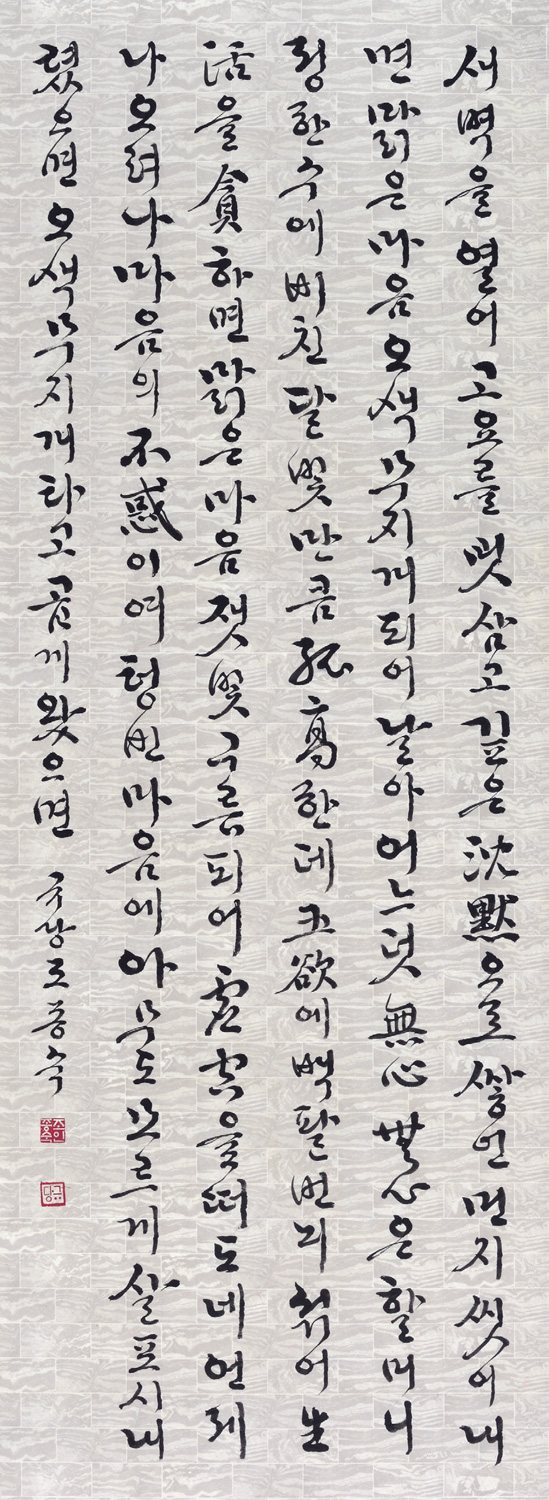 새벽을열어고요를벗삼고깊은沈默으로쌓인먼지씻어내
면맑은마음오색무지개되어날아어느덧無心無心은할머니
정한수에비친달빛만큼孤高한데五欲에백팔번뇌섞어生
活을貪하면맑은마음잿빛구름되어虛空을떠도네언제
나오려나마음의不惑이여텅빈마음에아무도모르게살포시내
렸으면오색무지개타고곱게왔으면 규당조종숙
규당